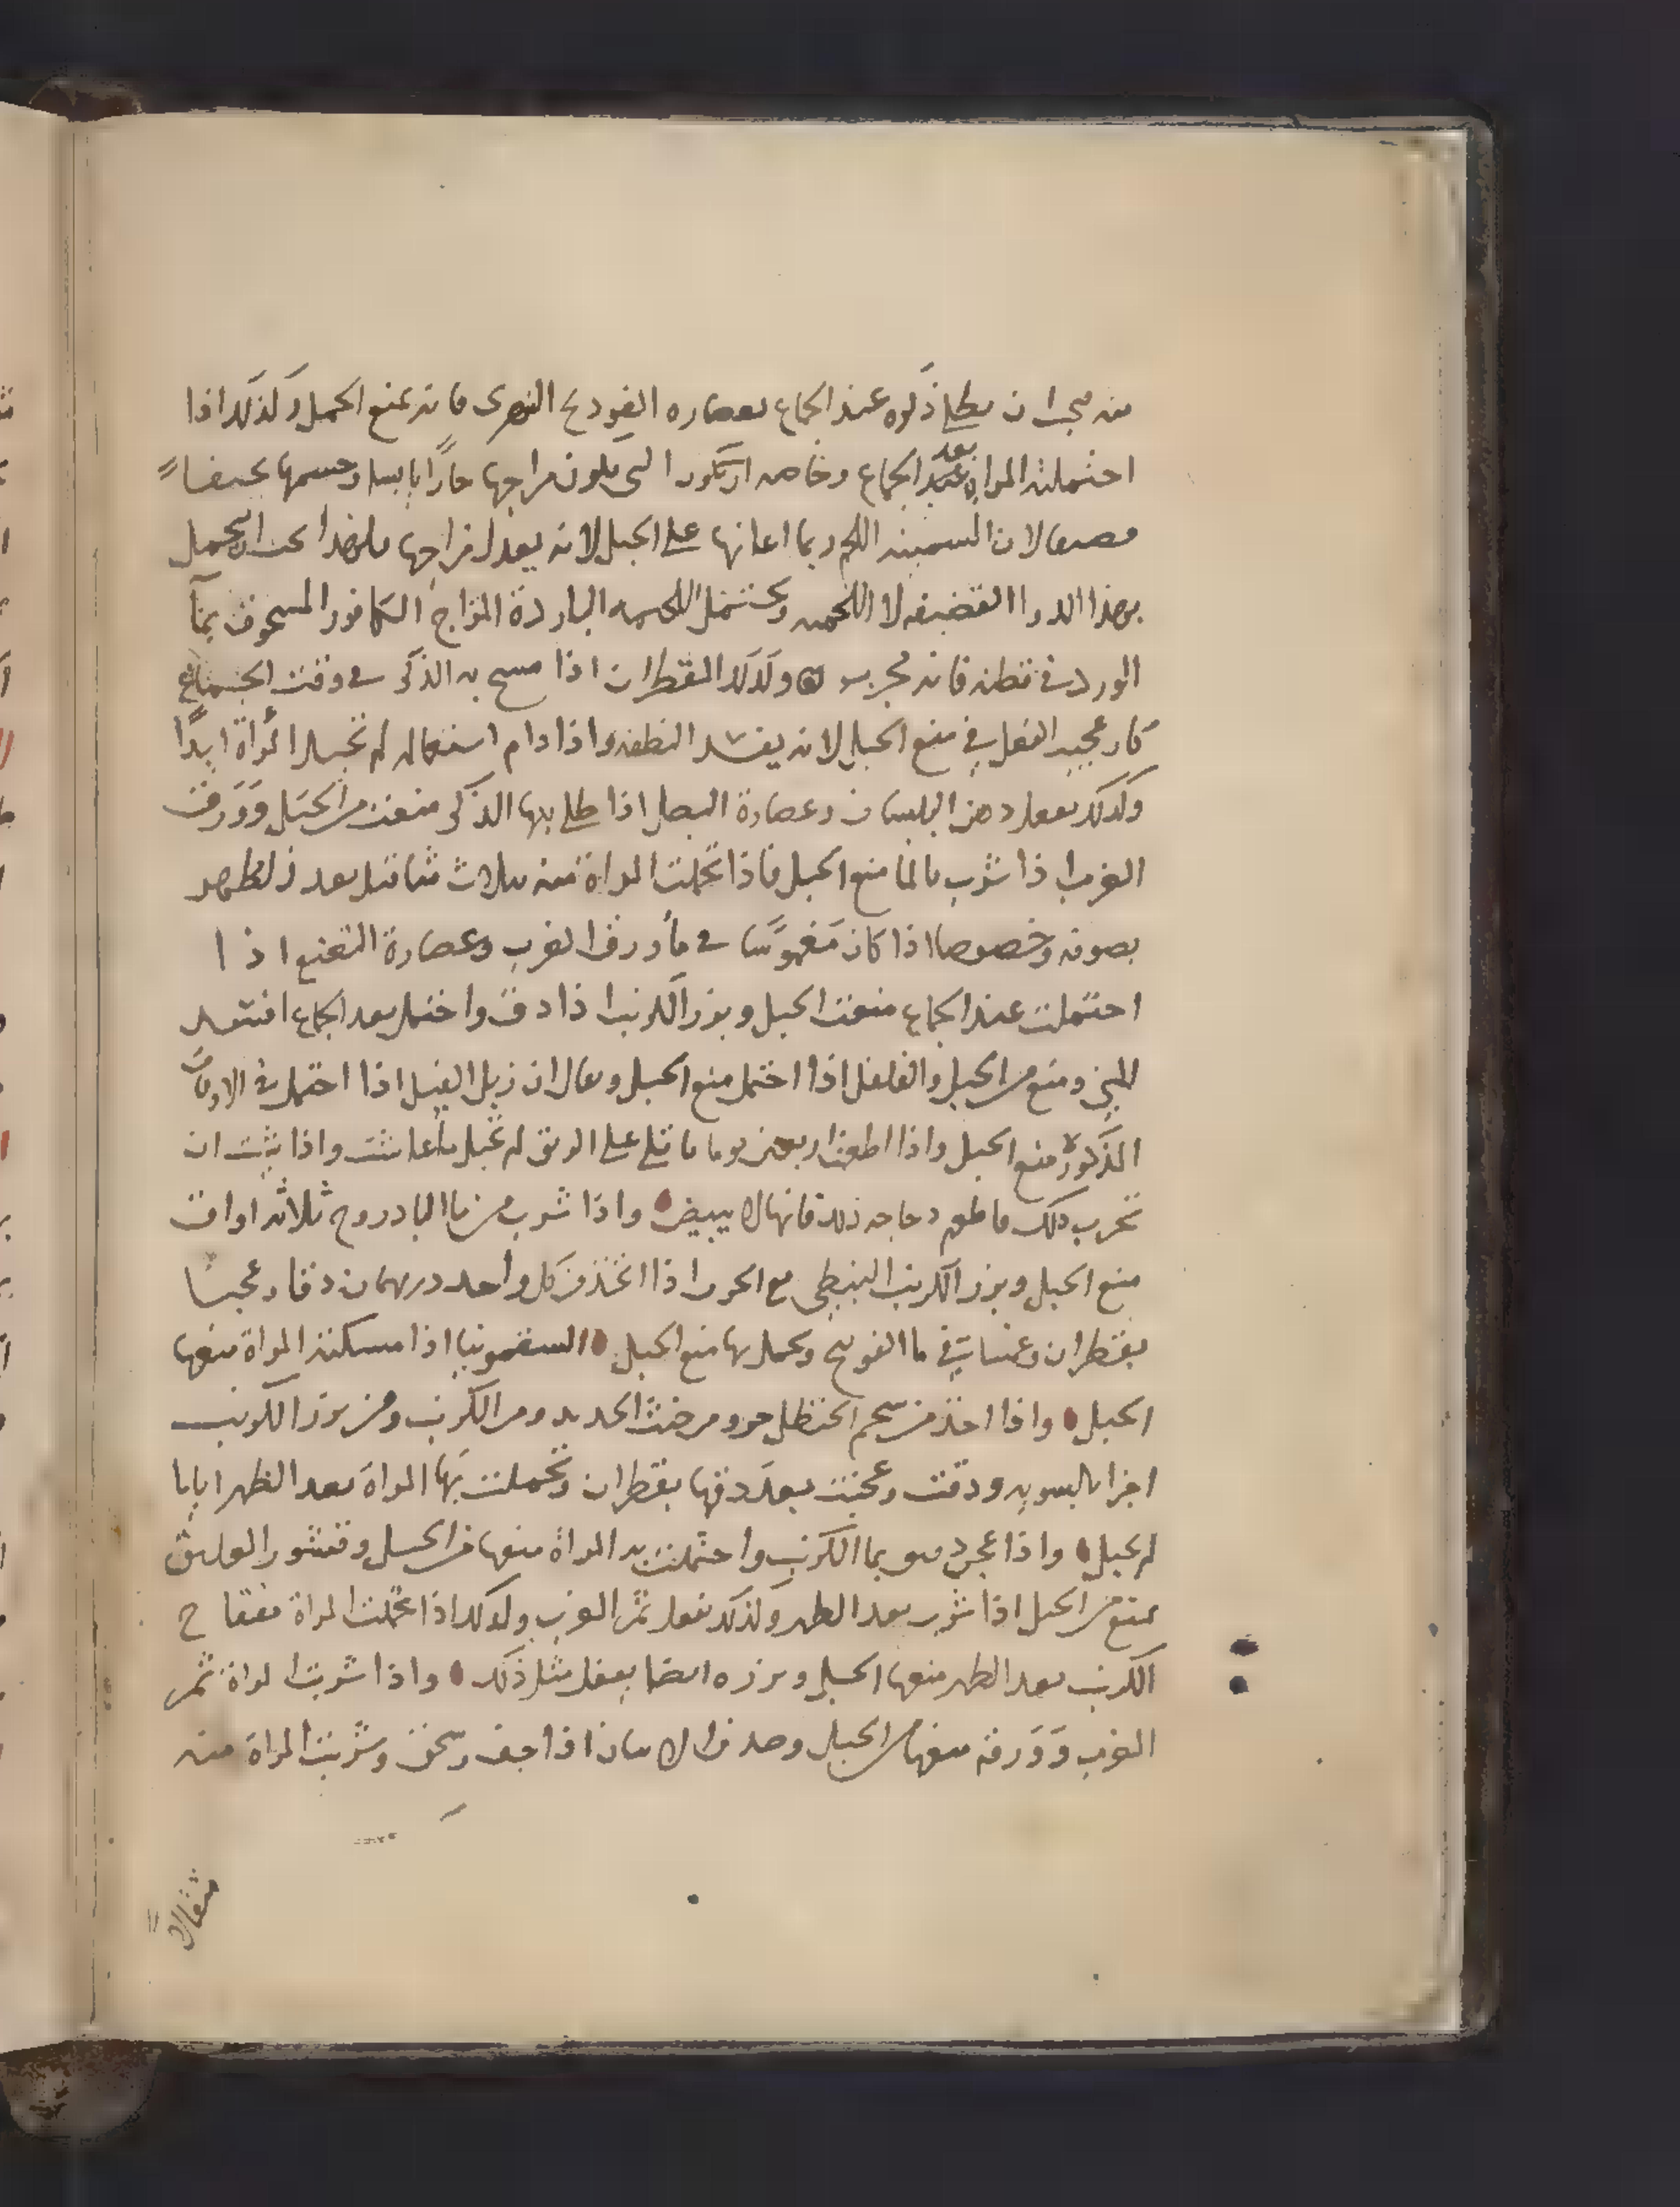 منه يجب ان يطلي ذكره عند الجماع بعصاره الفودنج النهرى فانه يمنع الحمل وكذلك اذا
احتملته المراه بعد الجماع وخاصه التى يكون مزاجها حارًا يابسا وجسمها نحيفاً
لان السمينه اللحم ربما اعانها على الحبل لانه يعدل مزاجها فلهذا يجب ان تحتمل
بهذا الدوا القضيفه لا اللحميه وتحتمل اللحميه الباردة المزاج الكافور المسحوق بمآ
الورد فى قطنه فانه مجرب وكذلك القطران اذا مسح به الذكر فى وقت الجماع
كان عجيب الفعل في منع الحبل لانه يفسد النطفه واذا دام استعماله لم تحبل المرأة ابدًا
وكذلك يفعل دهن البلسان وعصارة البصل اذا طلي بها الذكر منعت من الحبل وورق
الغرب اذا شرب بالما منع الحبل فاذا تحملت المراة منه ثلاث مثاقيل بعد الطهر
بصوفه وخصوصا اذا كان مغموسًا فى مأ ورق الغرب وعصارة النعنع اذا
احتملت عند الجماع منعت الحبل وبزر الكرنب اذا دق واحتمل بعد الجماع افسد
المني ومنع من الحبل والفلفل اذا احتمل منع الحبل ويقال ان زبل الفيل اذا احتمل في الاوقات
المذكورة منع الحبل واذا اطعمت اربعين يوما باقلي على الريق لم تحبل ما عاشت واذا شيت ان
تجرب ذلك فاطعم دجاجه ذلك فانها لا تبيض واذا شرب من ما البادروج ثلاثه اواق
منع الحبل وبزر الكرنب النبطي مع الحرمل اذا اتخذ من كل واحد درهمان دقا وعجنا
بقطران وغمسا في ما الفودنج وتحمل بها منع الحبل السقمونيا اذا مسكته المراة منعها
الحبل واذا اخذ من شحم الحنظل جزو ومن خبث الحديد ومن الكرنب ومن بزر الكرنب
اجزا بالسويه ودقت وعجنت بعد دقها بقطران وتحملت بها المراة بعد الطهر اياما
لم تحبل واذا عجن بما الكرنب واحتملت به المراة منعها من الحبل وقشور العليق
تمنع من الحبل اذا شرب بعد الطهر وكذلك يفعل ثمر الغرب وكذلك اذا تحملت المراة بفقاح
الكرنب بعد الطهر منعها الحبل وبزره ايضا يفعل مثل ذلك واذا شربت المراة ثمر
الغرب وورقه منعها من الحبل اذا جفف وسحق وشربت المراة منه
مثقالاً